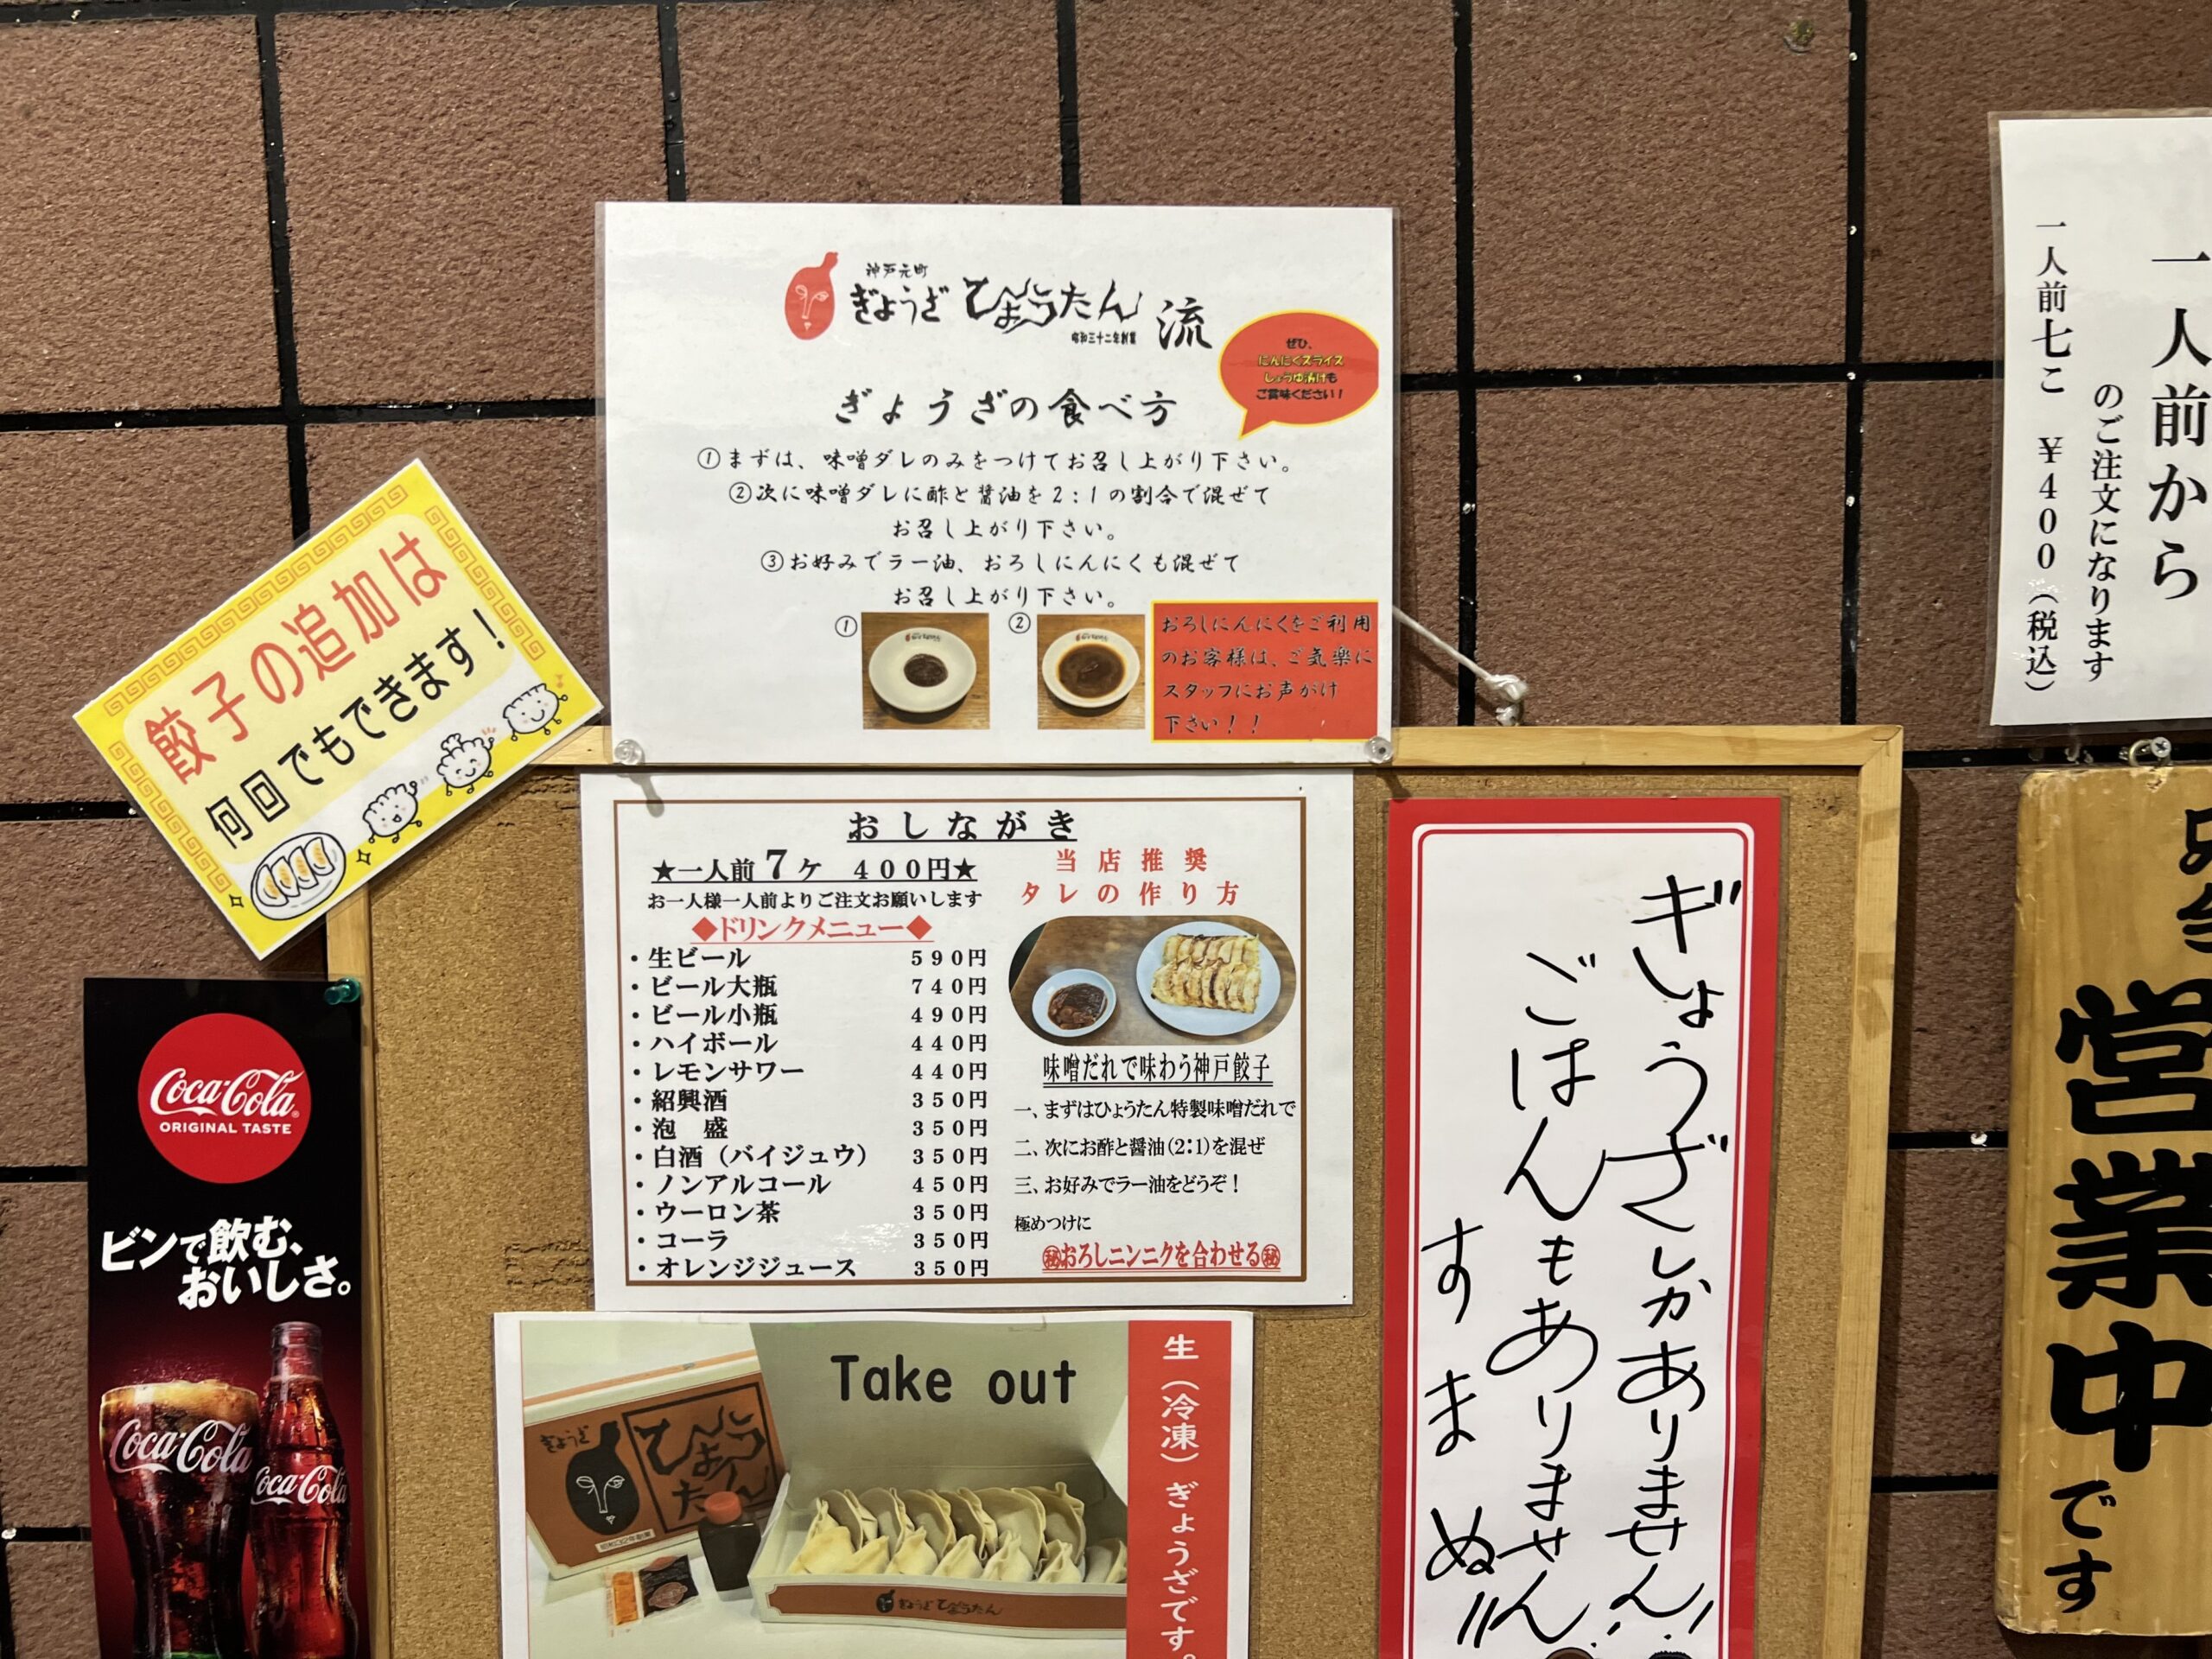 神戸元町
ぎょうざ ひょうたん 流
昭和三十二年創業
ぜひ、
にんにくスライス
しょうゆ漬けも
ご賞味ください！
ぎょうざの食べ方
①まずは、味噌ダレのみをつけてお召し上がり下さい。
②次に味噌ダレに酢と醤油を2：1の割合で混ぜて
お召し上がり下さい。
③お好みでラー油、おろしにんにくも混ぜて
お召し上がり下さい。
①
②
おろしにんにくをご利用
のお客様は、ご気楽に
スタッフにお声がけ
下さい！！
餃子の追加は
何回でもできます！
おしながき
★一人前７ケ ４００円★
お一人様一人前よりご注文お願いします
◆ドリンクメニュー◆
・生ビール ５９０円
・ビール大瓶 ７４０円
・ビール小瓶 ４９０円
・ハイボール ４４０円
・レモンサワー ４４０円
・紹興酒 ３５０円
・泡　盛 ３５０円
・白酒（バイジュウ） ３５０円
・ノンアルコール ４５０円
・ウーロン茶 ３５０円
・コーラ ３５０円
・オレンジジュース ３５０円
当店推奨
タレの作り方
味噌だれで味わう神戸餃子
一、まずはひょうたん特製味噌だれで
二、次にお酢と醤油(2:1)を混ぜ
三、お好みでラー油をどうぞ！
極めつけに
㊙おろしニンニクを合わせる㊙
Coca-Cola
ORIGINAL TASTE
ビンで飲む、
おいしさ。
Coca-Cola
Coca-Cola
Take out
生（冷凍）ぎょうざです。
ぎょうざ
ひょう
たん
ぎょうざ ひょうたん
ギょうざしかありません!
ごはんもありません
すまぬ!!
一人前から
のご注文になります
一人前七こ ￥４００（税込）
営業中です